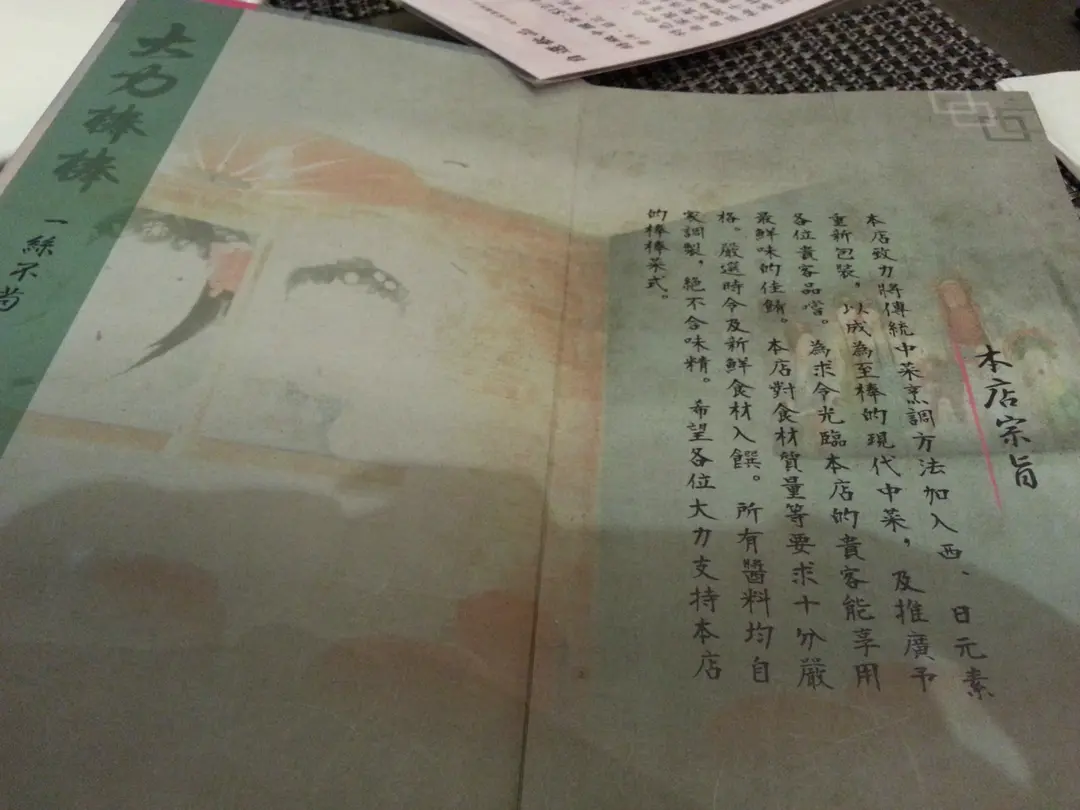 本店宗旨
本店致力將傳統中菜烹調方法加入西、日元素
重新包裝，以成為至棒的現代中菜，及推廣予
各位貴客品嚐。為求令光臨本店的貴客能享用
最鮮味的佳餚。本店對食材質量等要求十分嚴
格。嚴選時令及新鮮食材入饌。所有醬料均自
家調製，絕不含味精。希望各位大力支持本店
的棒棒菜式。
大力棒棒
一絲不苟